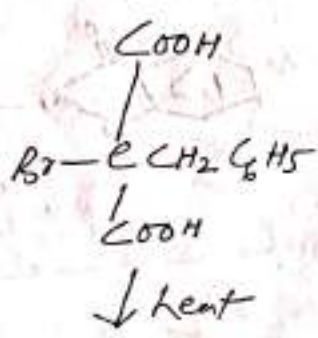 COOH
Br-C CH2 C6H5
COOH
↓ heat